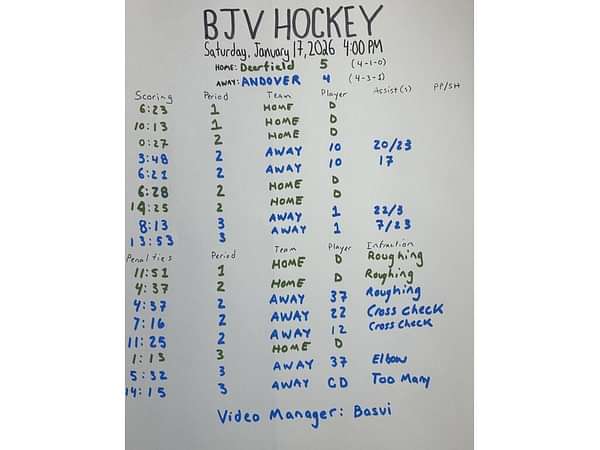 BJV HOCKEY
Saturday, January 17, 2026 4:00 PM
HOME: Deerfield 5 (4-1-0)
AWAY: ANDOVER 4 (4-3-1)
Scoring Period Team Player Assist(s) PP/SH
6:23 1 HOME D
10:13 1 HOME D
0:27 2 HOME D
3:48 2 AWAY 10 20/23
6:21 2 AWAY 10 17
6:28 2 HOME D
14:25 2 HOME D
8:13 3 AWAY 1 22/3
13:53 3 AWAY 1 7/23
Penalties Period Team Player Infraction
11:51 1 HOME D Roughing
4:37 2 HOME D Roughing
4:37 2 AWAY 37 Roughing
7:16 2 AWAY 22 Cross Check
11:25 2 AWAY 12 Cross Check
1:13 3 HOME D
5:32 3 AWAY 37 Elbow
14:15 3 AWAY CD Too Many
Video Manager: Basvi